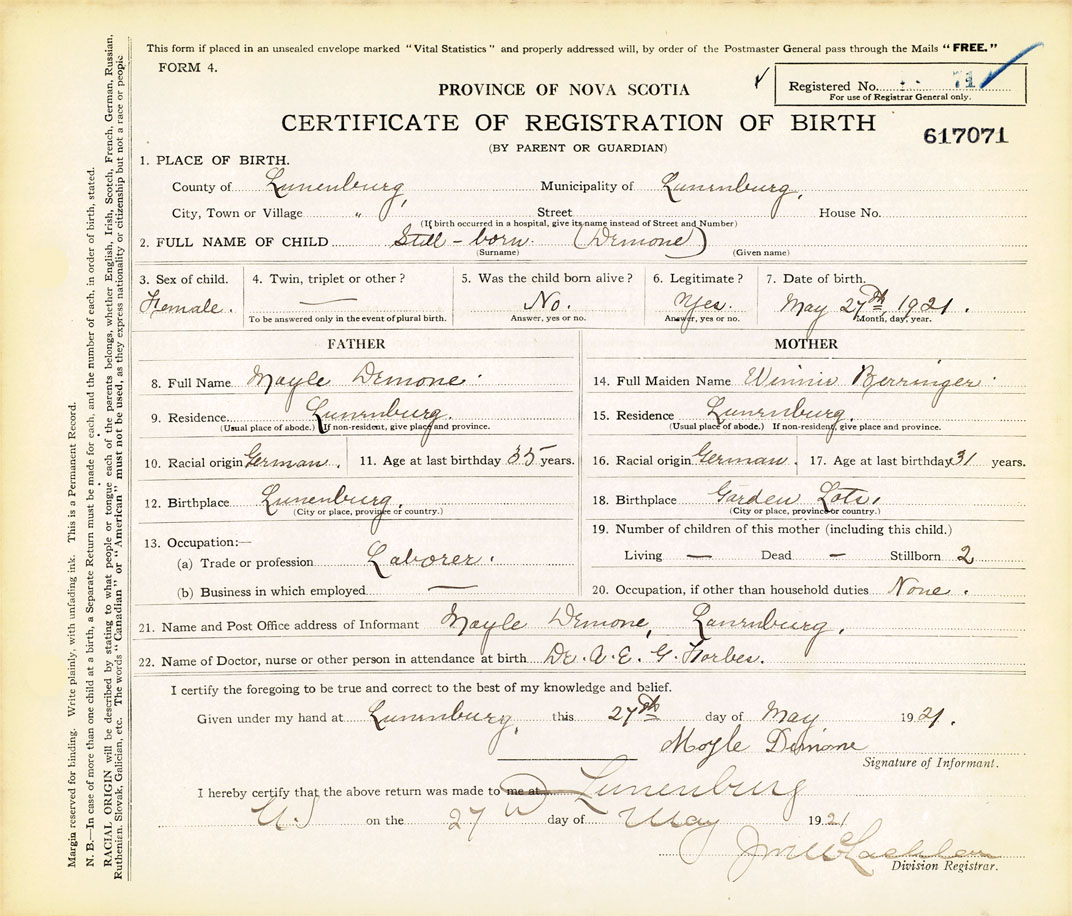 This form if placed in an unsealed envelope marked "Vital Statistics" and properly addressed will, by order of the Postmaster General pass through the Mails "FREE."
FORM 4.
Registered No. 71
For use of Registrar General only.
PROVINCE OF NOVA SCOTIA
CERTIFICATE OF REGISTRATION OF BIRTH
617071
(BY PARENT OR GUARDIAN)
1. PLACE OF BIRTH.
County of Lunenburg, Municipality of Lunenburg,
City, Town or Village " Street House No.
(If birth occurred in a hospital, give its name instead of Street and Number)
2. FULL NAME OF CHILD Still-born. (Demone)
(Surname) (Given name)
3. Sex of child. 4. Twin, triplet or other? 5. Was the child born alive? 6. Legitimate? 7. Date of birth.
Female. — No. Yes. May 27th, 1921.
To be answered only in the event of plural birth. Answer, yes or no. Answer, yes or no. Month, day, year.
FATHER
8. Full Name Moyle Demone.
9. Residence Lunenburg.
(Usual place of abode.) If non-resident, give place and province.
10. Racial origin German. 11. Age at last birthday 35 years.
12. Birthplace Lunenburg,
(City or place, province or country.)
13. Occupation:—
(a) Trade or profession Laborer.
(b) Business in which employed —
MOTHER
14. Full Maiden Name Winnie Berringer.
15. Residence Lunenburg.
(Usual place of abode.) If non-resident, give place and province.
16. Racial origin German. 17. Age at last birthday 31 years.
18. Birthplace Garden Lots.
(City or place, province or country.)
19. Number of children of this mother (including this child.)
Living — Dead — Stillborn 2
20. Occupation, if other than household duties None.
21. Name and Post Office address of Informant Moyle Demone, Lunenburg.
22. Name of Doctor, nurse or other person in attendance at birth Dr. A. E. G. Forbes.
I certify the foregoing to be true and correct to the best of my knowledge and belief.
Given under my hand at Lunenburg, this 27th day of May 1921.
Moyle Demone
Signature of Informant.
I hereby certify that the above return was made to me at Lunenburg
on the 27 day of May 1921
Division Registrar.
Margin reserved for binding. Write plainly, with unfading ink. This is a Permanent Record.
N. B.—In case of more than one child at a birth, a Separate Return must be made for each, and the number of each, in order of birth, stated.
RACIAL ORIGIN will be described by stating to what people or tongue each of the parents belongs, whether English, Irish, Scotch, French, German, Russian,
Ruthenian, Slovak, Galician, etc. The words "Canadian" or "American" must not be used, as they express nationality or citizenship but not a race or people